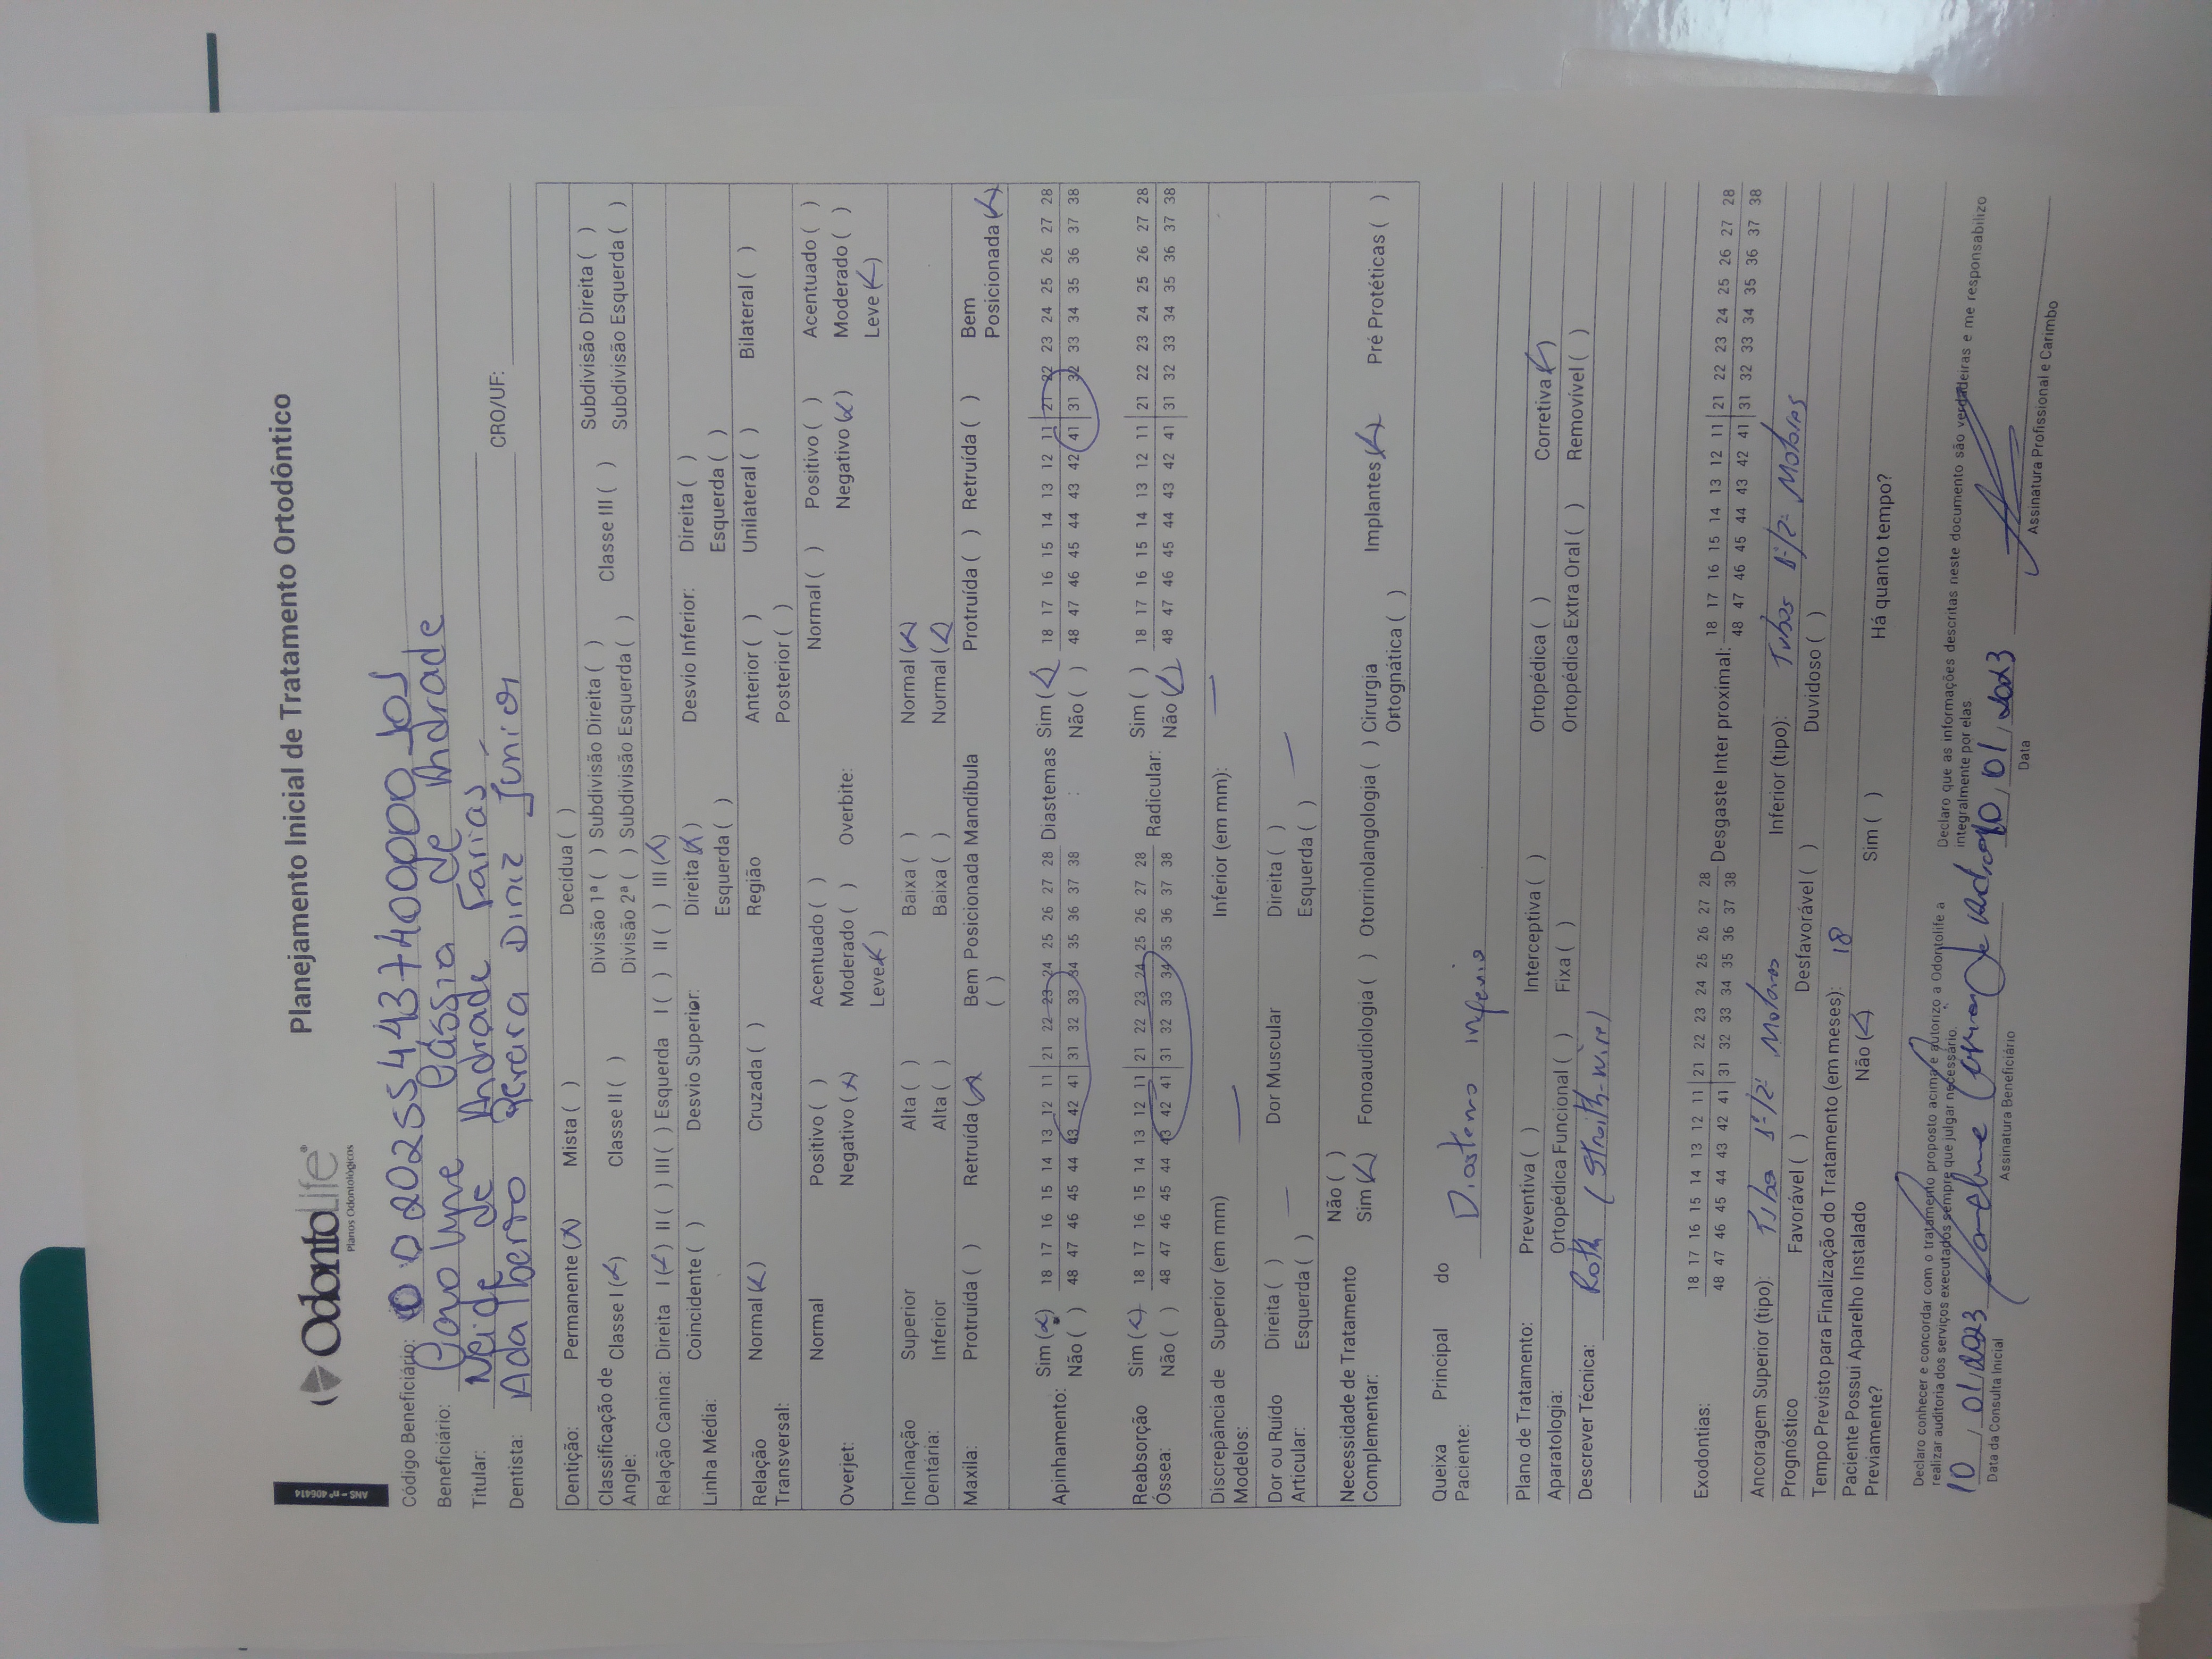 ANS - nº 406414
OdontoLife®
Planos Odontológicos
Planejamento Inicial de Tratamento Ortodôntico
Código Beneficiário: 00202554437400000101
Beneficiário: Carolyne Cássia de Andrade
Titular: Neide de Andrade Farias
Dentista: Adalberro Pereira Diniz Júnior CRO/UF:
Dentição: Permanente (X) Mista ( ) Decídua ( )
Classificação de Angle: Classe I (X) Classe II ( ) Divisão 1ª ( ) Subdivisão Direita ( ) Classe III ( ) Subdivisão Direita ( )
Divisão 2ª ( ) Subdivisão Esquerda ( ) Subdivisão Esquerda ( )
Relação Canina: Direita I (X) II ( ) III ( ) Esquerda I ( ) II ( ) III (X)
Linha Média: Coincidente ( ) Desvio Superior: Direita (X) Desvio Inferior: Direita ( )
Esquerda ( ) Esquerda ( )
Relação Transversal: Normal (X) Cruzada ( ) Região Anterior ( ) Unilateral ( ) Bilateral ( )
Posterior ( )
Overjet: Normal Positivo ( ) Acentuado ( ) Overbite: Normal ( ) Positivo ( ) Acentuado ( )
Negativo (X) Moderado ( ) Negativo (X) Moderado ( )
Leve (X) Leve (X)
Inclinação Dentária: Superior Alta ( ) Baixa ( ) Normal (X)
Inferior Alta ( ) Baixa ( ) Normal (X)
Maxila: Protruída ( ) Retruída (X) Bem Posicionada ( ) Mandíbula Protruída ( ) Retruída ( ) Bem Posicionada (X)
Apinhamento: Sim (X) 18 17 16 15 14 13 12 11 | 21 22 23 24 25 26 27 28 Diastemas : Sim (X) 18 17 16 15 14 13 12 11 | 21 22 23 24 25 26 27 28
Não ( ) 48 47 46 45 44 43 42 41 | 31 32 33 34 35 36 37 38 Não ( ) 48 47 46 45 44 43 42 41 | 31 32 33 34 35 36 37 38
Reabsorção Óssea: Sim (X) 18 17 16 15 14 13 12 11 | 21 22 23 24 25 26 27 28 Radicular: Sim ( ) 18 17 16 15 14 13 12 11 | 21 22 23 24 25 26 27 28
Não ( ) 48 47 46 45 44 43 42 41 | 31 32 33 34 35 36 37 38 Não (X) 48 47 46 45 44 43 42 41 | 31 32 33 34 35 36 37 38
Discrepância de Modelos: Superior (em mm) — Inferior (em mm): —
Dor ou Ruído Articular: Direita ( ) — Dor Muscular Direita ( ) —
Esquerda ( ) Esquerda ( )
Necessidade de Tratamento Complementar: Não ( )
Sim (X) Fonoaudiologia ( ) Otorrinolangologia ( ) Cirurgia Ortognática ( ) Implantes (X) Pré Protéticas ( )
Queixa Principal do Paciente: Diastema inferio
Plano de Tratamento: Preventiva ( ) Interceptiva ( ) Ortopédica ( ) Corretiva (X)
Aparatologia: Ortopédica Funcional ( ) Fixa ( ) Ortopédica Extra Oral ( ) Removível ( )
Descrever Técnica: Roth (Straith-wire)
Exodontias: 18 17 16 15 14 13 12 11 | 21 22 23 24 25 26 27 28 Desgaste Inter proximal: 18 17 16 15 14 13 12 11 | 21 22 23 24 25 26 27 28
48 47 46 45 44 43 42 41 | 31 32 33 34 35 36 37 38 48 47 46 45 44 43 42 41 | 31 32 33 34 35 36 37 38
Ancoragem Superior (tipo): Tubos 1º/2º Molares Inferior (tipo): Tubos 1º/2º Molares
Prognóstico Favorável ( ) Desfavorável ( ) Duvidoso ( )
Tempo Previsto para Finalização do Tratamento (em meses): 18
Paciente Possui Aparelho Instalado Previamente? Não (X) Sim ( ) Há quanto tempo?
Declaro conhecer e concordar com o tratamento proposto acima e autorizo a Odontolife a
realizar auditoria dos serviços executados sempre que julgar necessário.
Declaro que as informações descritas neste documento são verdadeiras e me responsabilizo
integralmente por elas
10, 01, 2023
Data da Consulta Inicial
Assinatura Beneficiário
10, 01, 2023
Data
Assinatura Profissional e Carimbo